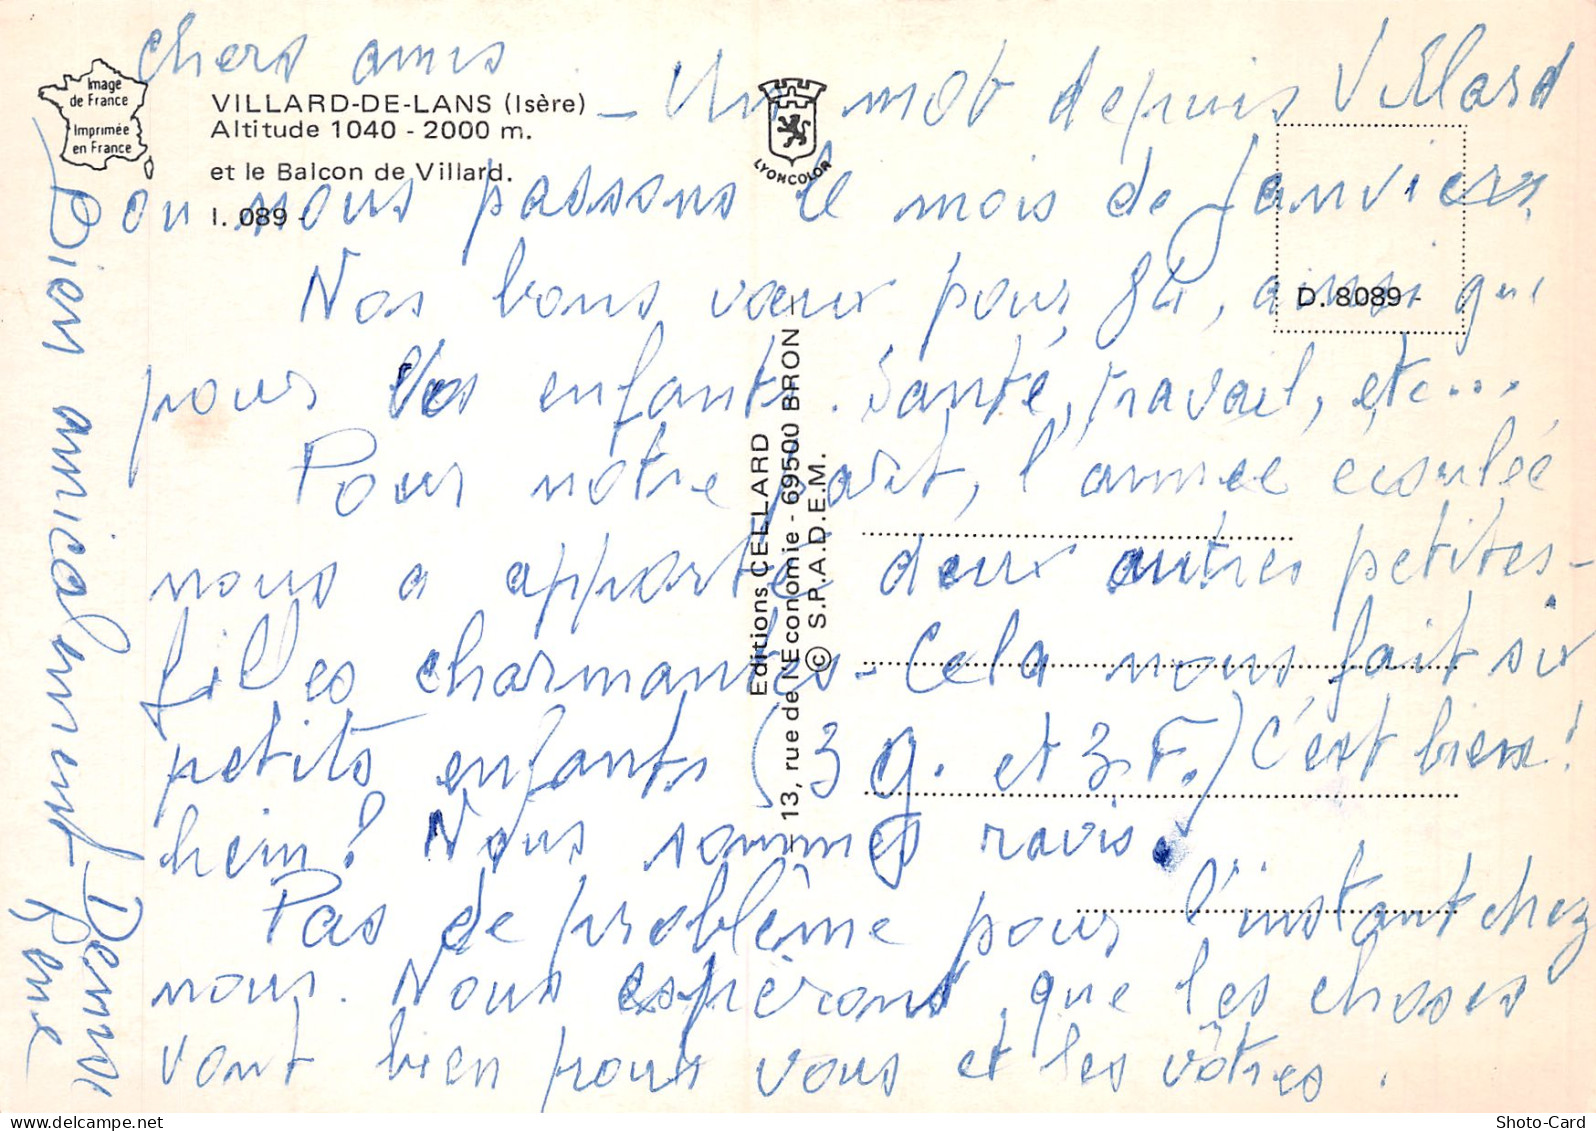 chers amis
– Un mot depuis Villard
ou nous passons le mois de Janvier,
Nos bons vœux pour 84, ainsi que
pour vos enfants. Santé, travail, etc...
Pour notre part, l'année écoulée
nous a apporté deux autres petites-
filles charmantes - Cela nous fait six
petits enfants (3 g. et 3 F.) C'est bien!
hein? Nous sommes ravis.
Pas de problème pour l'instant chez
nous. Nous espérons, que les choses
vont bien pour vous et les vôtres.
Bien amicalement
René
Image
de France
Imprimée
en France
VILLARD-DE-LANS (Isère)
Altitude 1040 - 2000 m.
et le Balcon de Villard.
I. 089 -
LYONCOLOR
D. 8089 -
Editions CELLARD
13, rue de l'Economie - 69500 BRON
© S.P.A.D.E.M.
Shoto-Card